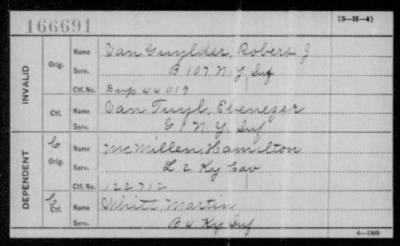 166691 (3-II-4)
INVALID
Orig. Name Van Guylder, Robert J
Serv. B 107 N.Y. Inf
Ctf. No. Dup 44019
Ctf. Name Van Tuyl, Ebenezer
Serv. G 1 N.Y. Inf
DEPENDENT
C Orig. Name McMillen, Hamilton
Serv. L 2 Ky Cav
Ctf. No. 122712
C Ctf. Name White Martin
Serv. B 4 Ky Inf